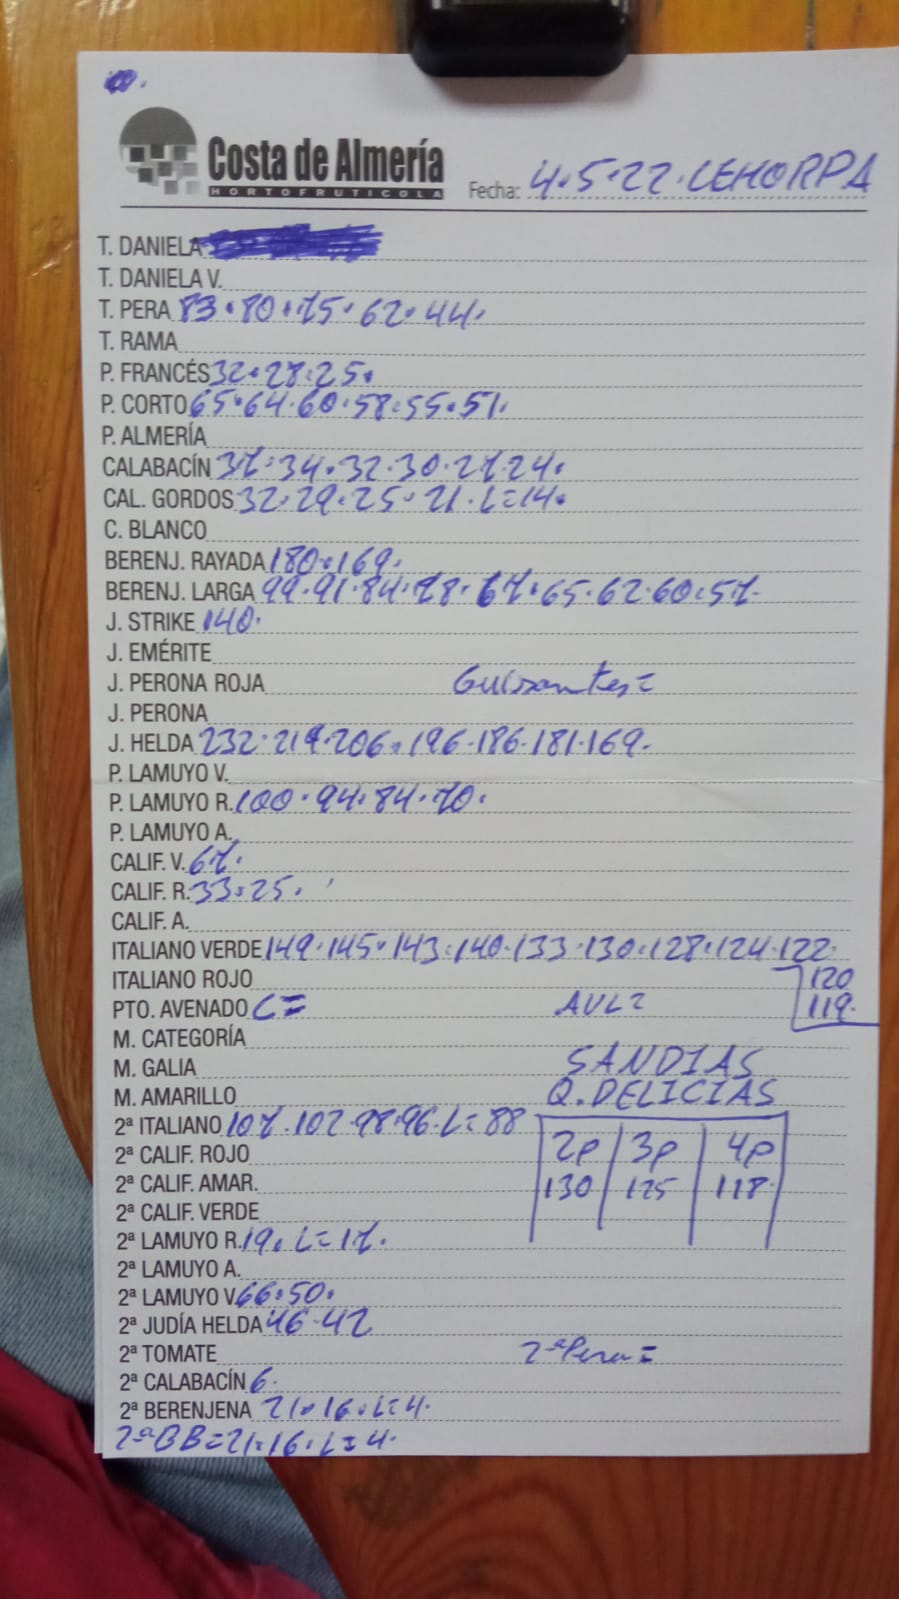 Costa de Almería
HORTOFRUTICOLA
Fecha: 4.5.22. CEHORPA
T. DANIELA
T. DANIELA V.
T. PERA 83.80.75.62.44.
T. RAMA
P. FRANCÉS 32.28.25.
P. CORTO 65.64.60.58.55.51.
P. ALMERÍA
CALABACÍN 37.34.32.30.27.24.
CAL. GORDOS 32.29.25.21.L=14.
C. BLANCO
BERENJ. RAYADA 180.169.
BERENJ. LARGA 99.91.84.78.67.65.62.60.57.
J. STRIKE 140.
J. EMÉRITE
J. PERONA ROJA Guisantes=
J. PERONA
J. HELDA 232.219.206.196.186.181.169.
P. LAMUYO V.
P. LAMUYO R. 100.94.84.70.
P. LAMUYO A.
CALIF. V. 67.
CALIF. R. 33.25.
CALIF. A.
ITALIANO VERDE 149.145.143.140.133.130.128.124.122.
ITALIANO ROJO 120
PTO. AVENADO L= AVL= 119.
M. CATEGORÍA
M. GALIA SANDIAS
M. AMARILLO Q. DELICIAS
2ª ITALIANO 107.102.98.96.L=88
2ª CALIF. ROJO 2p 3p 4p
2ª CALIF. AMAR. 130 125 118.
2ª CALIF. VERDE
2ª LAMUYO R. 19. L=17.
2ª LAMUYO A.
2ª LAMUYO V. 66.50.
2ª JUDÍA HELDA 46.42
2ª TOMATE 2ª Pera=
2ª CALABACÍN 6.
2ª BERENJENA 21.16.L=4.
2ª BB=21.16.L=4.